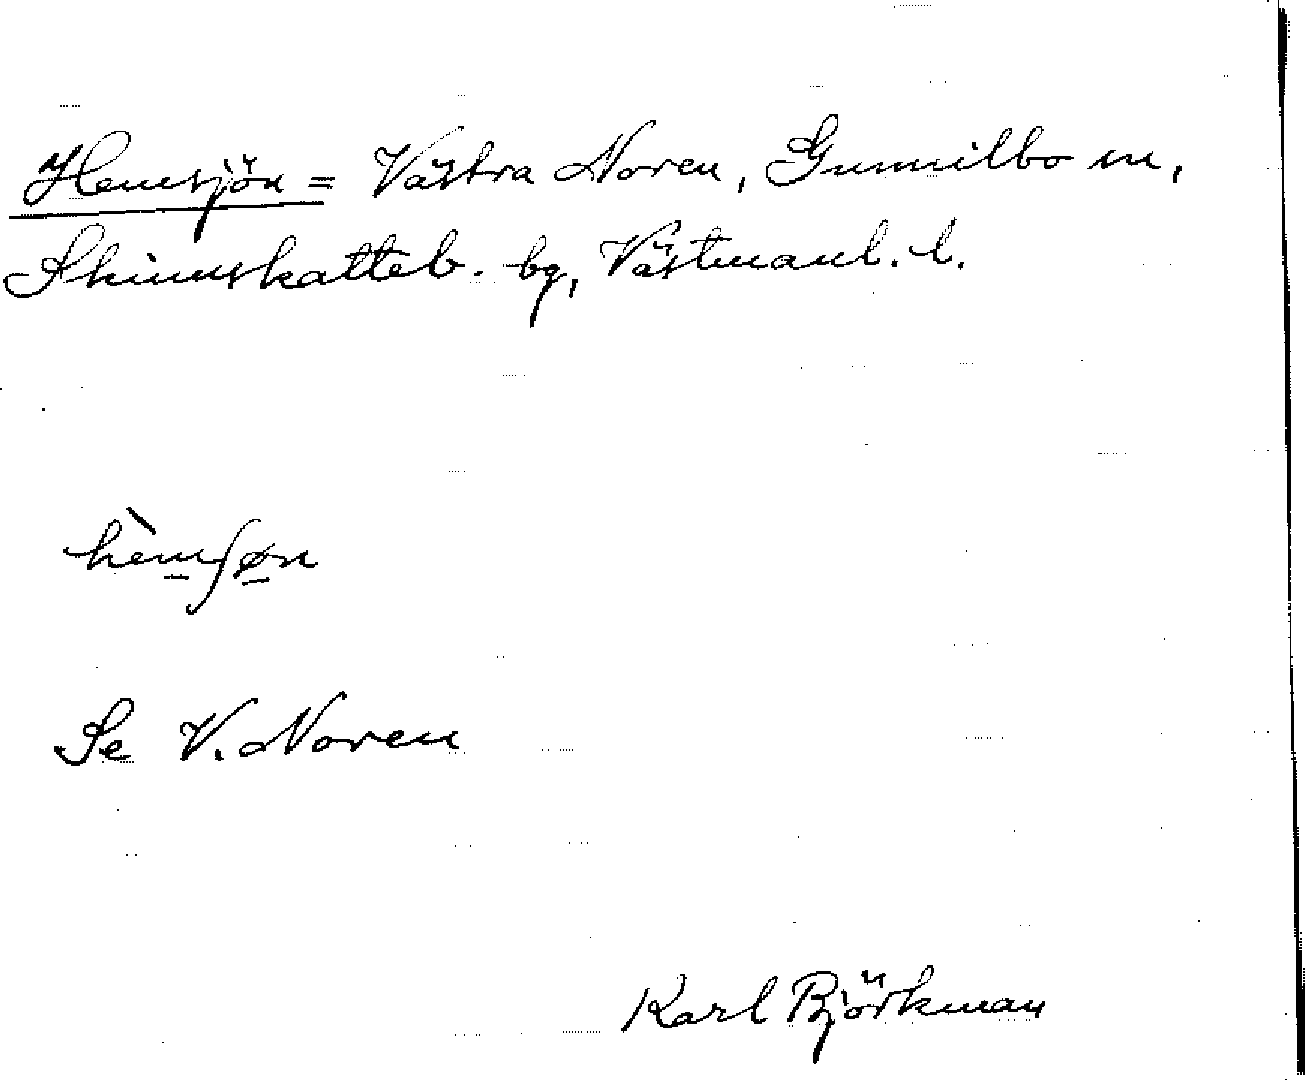 Hemsjön = Västra Noren, Gunnilbo sn,
Skinnskatteb. bg, Västmanl. l.
hèmʃøn
Se V. Noren
Karl Björkman